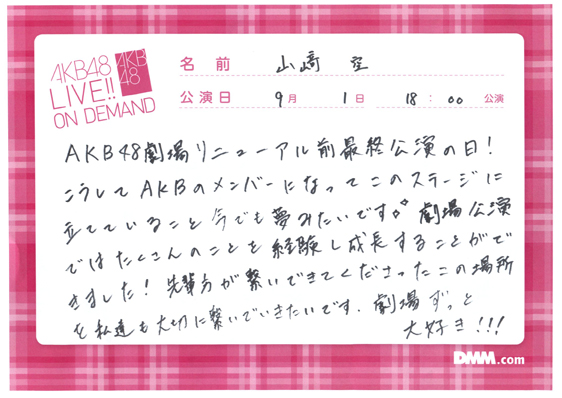 AKB48
LIVE!!
ON DEMAND
AKB
48
名前 山﨑 空
公演日 9月 1日 18:00 公演
AKB48劇場リニューアル前最終公演の日!
こうしてAKBのメンバーになってこのステージに
立てていること今でも夢みたいです。劇場公演
ではたくさんのことを経験し成長することがで
きました!先輩方が繋いできてくださったこの場所
を私達も大切に繋いでいきたいです.劇場ずっと
大好き!!!
DMM.com